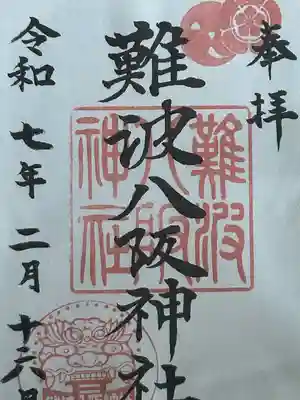 奉拝
難波八阪神社
令和七年二月十六日
難波
八阪
神社